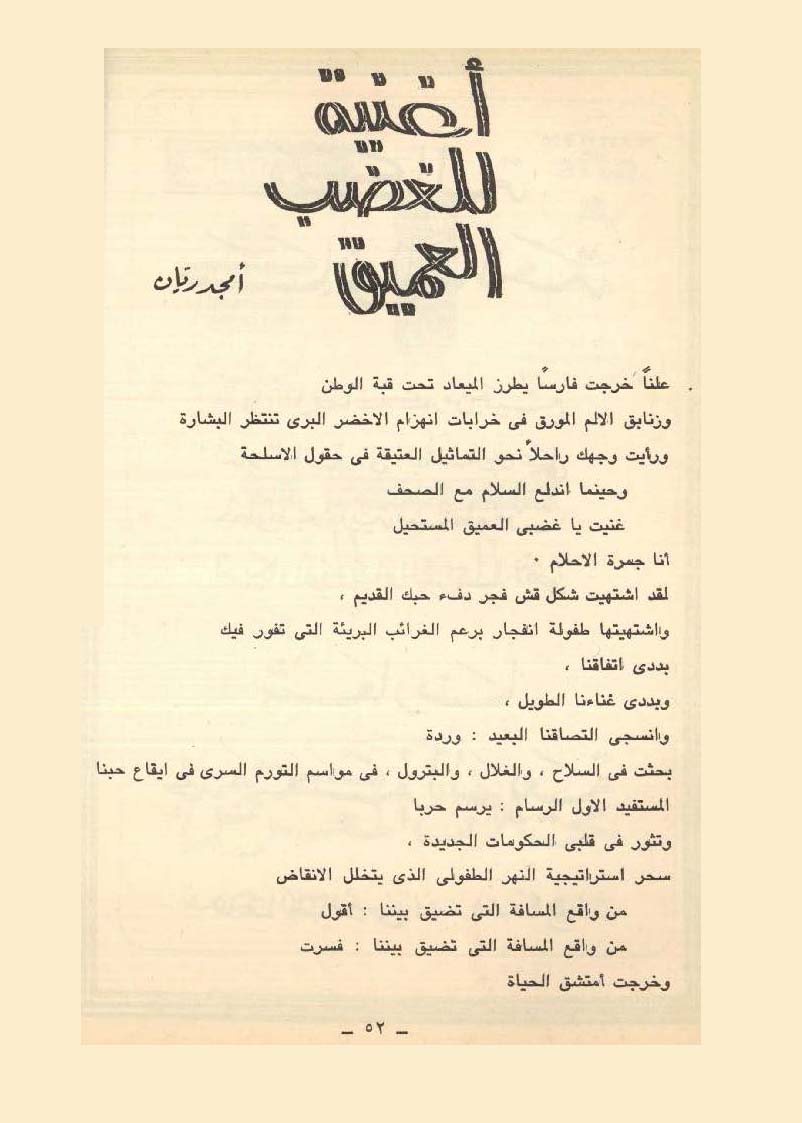 أغنية
للغضب
العميق
أمجد ريان
علناً خرجت فارساً يطرز الميعاد تحت قبة الوطن
وزنابق الالم المورق فى خرابات انهزام الاخضر البرى تنتظر البشارة
ورأيت وجهك راحلاً نحو التماثيل العتيقة فى حقول الاسلحة
وحينما اندلع السلام مع الصحف
غنيت يا غضبى العميق المستحيل
أنا جمرة الاحلام ٠
لقد اشتهيت شكل قش فجر دفء حبك القديم ،
واشتهيتها طفولة انفجار برعم الغرائب البريئة التى تفور فيك
بددى اتفاقنا ،
وبددى غناءنا الطويل ،
وانسجى التصاقنا البعيد : وردة
بحثت فى السلاح ، والغلال ، والبترول ، فى مواسم التورم السرى فى ايقاع حبنا
المستفيد الاول الرسام : يرسم حربا
وتثور فى قلبى الحكومات الجديدة ،
سحر استراتيجية النهر الطفولى الذى يتخلل الانقاض
من واقع المسافة التى تضيق بيننا : أقول
من واقع المسافة التى تضيق بيننا : فسرت
وخرجت أمتشق الحياة
— ٥٢ —